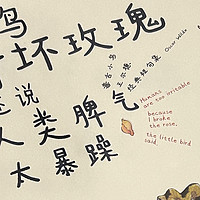 鸟
坏玫瑰
说
类脾气
人太暴躁
王尔德
Oscar Wilde
Humans
are too irritable
because
I broke
the rose,
the little bird
said